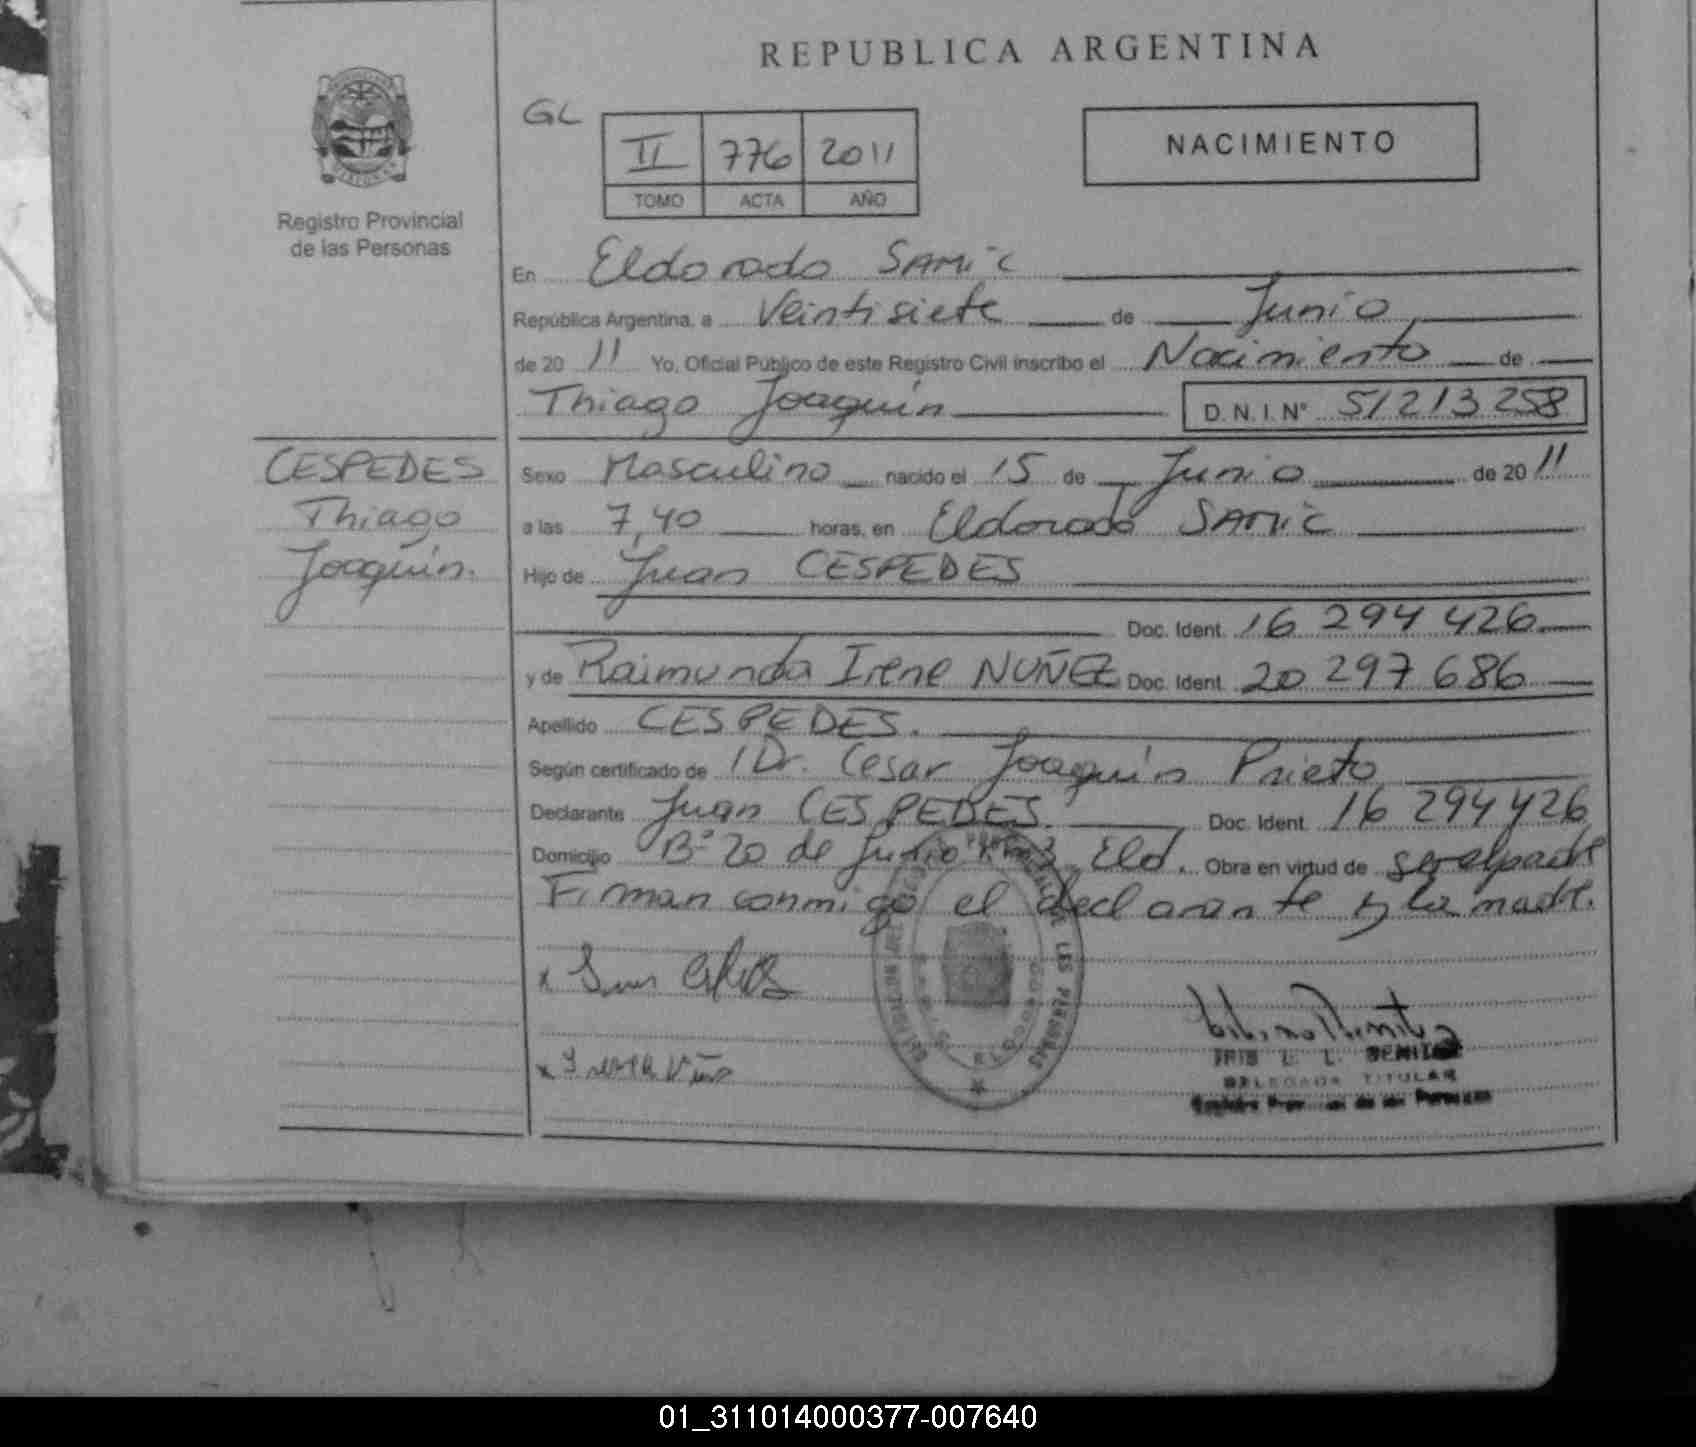 REPUBLICA ARGENTINA
GL
II 776 2011
TOMO ACTA AÑO
NACIMIENTO
Registro Provincial
de las Personas
En Eldorado SAMIC
República Argentina, a Veintisiete de Junio
de 20 11 Yo, Oficial Público de este Registro Civil inscribo el Nacimiento de
Thiago Joaquín D.N.I. N° 51213258
CESPEDES
Thiago
Joaquín.
Sexo Masculino nacido el 15 de Junio de 20 11
a las 7,40 horas, en Eldorado SAMIC
Hijo de Juan CESPEDES
Doc. Ident. 16 294 426
y de Raimunda Irene NUÑEZ Doc. Ident. 20 297 686
Apellido CESPEDES.
Según certificado de Dr. Cesar Joaquín Prieto
Declarante Juan CESPEDES. Doc. Ident. 16 294 426
Domicilio B° 20 de Junio Eld. Obra en virtud de ser el padre
Firman conmigo el declarante y la madre.
DELEGADA TITULAR
Registro Prov. de las Personas
01_311014000377-007640